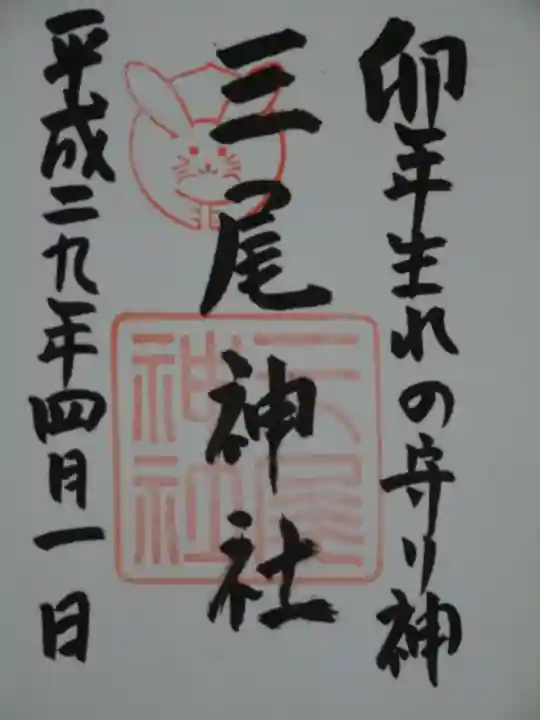 卯年生れの守り神
三尾神社
三尾神社
平成二九年四月一日